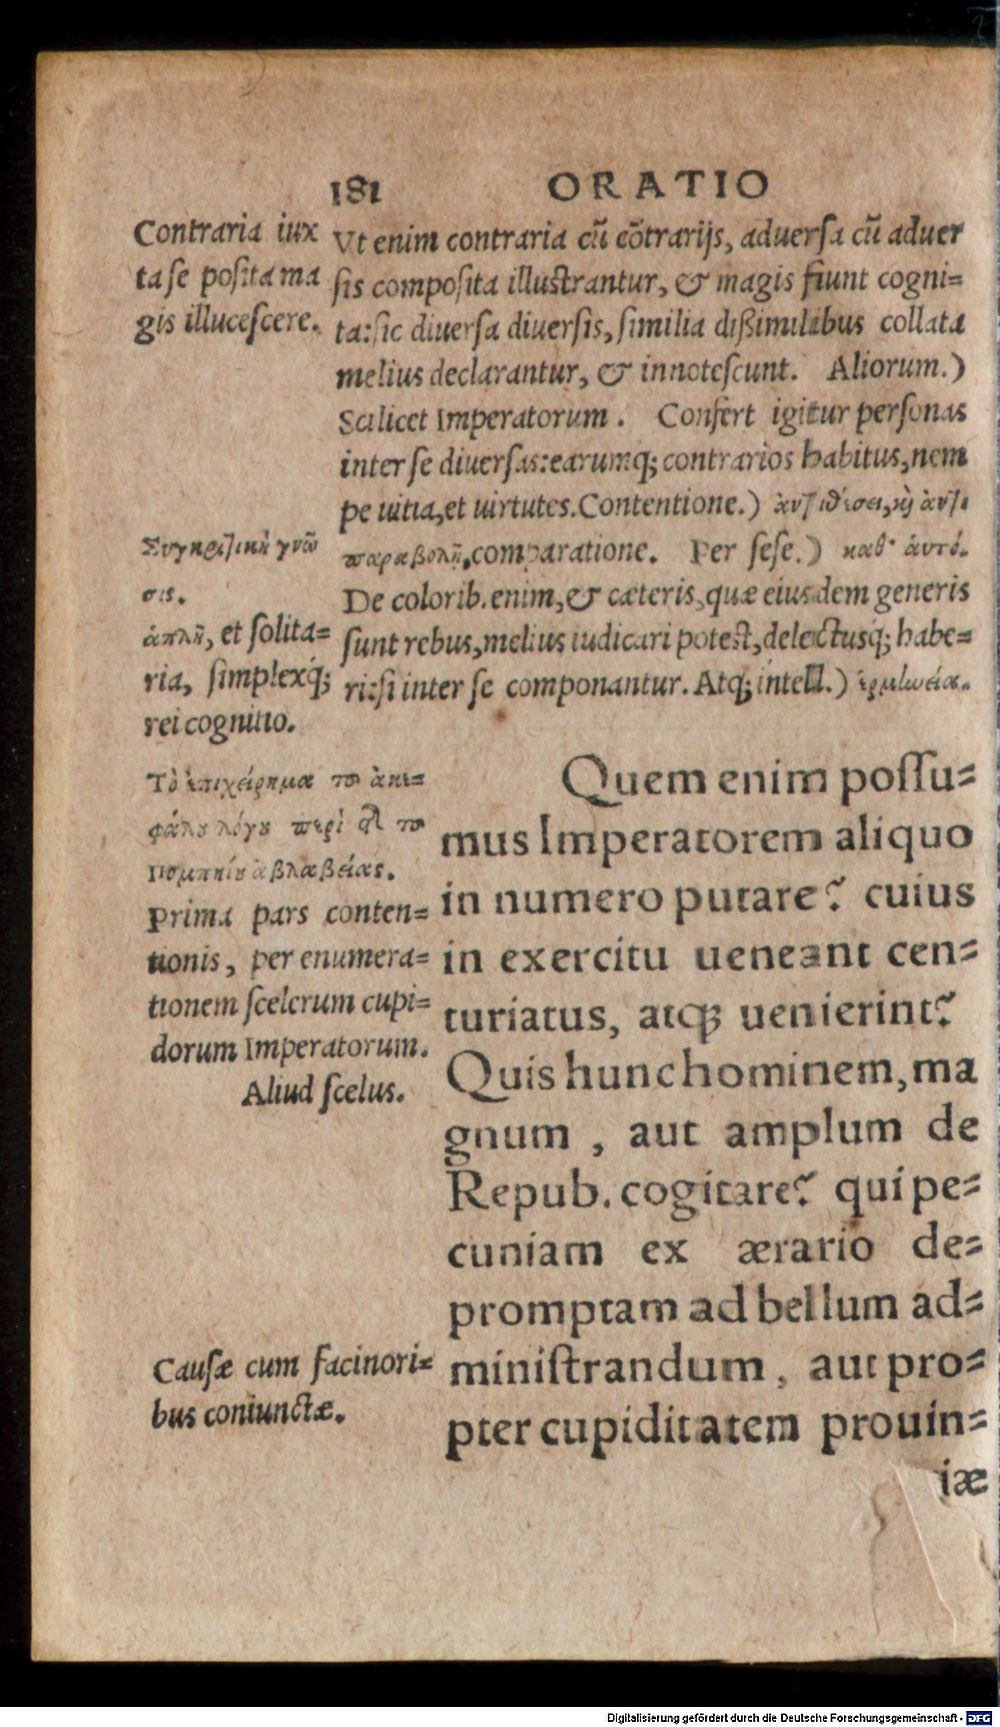 181 ORATIO
Contraria iux
ta se posita ma
gis illucescere.
Vt enim contraria cũ cõtrarijs, aduersa cũ aduer
sis composita illustrantur, & magis fiunt cogni=
ta: sic diuersa diuersis, similia dißimilibus collata
melius declarantur, & innotescunt. Aliorum.)
Scilicet Imperatorum. Confert igitur personas
inter se diuersas: earumq; contrarios habitus, nem
pe uitia, et uirtutes. Contentione.) ἀντιθέσει, καὶ ἀντι
παραβολῇ, comparatione. Per sese.) καθ' ἁυτό.
De colorib. enim, & cæteris, quæ eiusdem generis
sunt rebus, melius iudicari potest, delectusq; habe=
ri: si inter se componantur. Atq; intell.) ἑρμηνεία.
Συγκριτικὴ γνῶ
σις.
ἁπλῆ, et solita=
ria, simplexq;
rei cognitio.
Τὸ ἐπιχείρημα τοῦ ἀκε=
φάλου λόγου περὶ τῆς τοῦ
Πομπηίου ἀβλαβείας.
Prima pars conten=
tionis, per enumera=
tionem scelerum cupi=
dorum Imperatorum.
Aliud scelus.
Causæ cum facinori=
bus coniunctæ.
Quem enim possu=
mus Imperatorem aliquo
in numero putare? cuius
in exercitu ueneant cen=
turiatus, atq; uenierint?
Quis hunc hominem, ma
gnum, aut amplum de
Repub. cogitare? qui pe=
cuniam ex ærario de=
promptam ad bellum ad=
ministrandum, aut pro=
pter cupiditatem prouin=
iæ
Digitalisierung gefördert durch die Deutsche Forschungsgemeinschaft - DFG